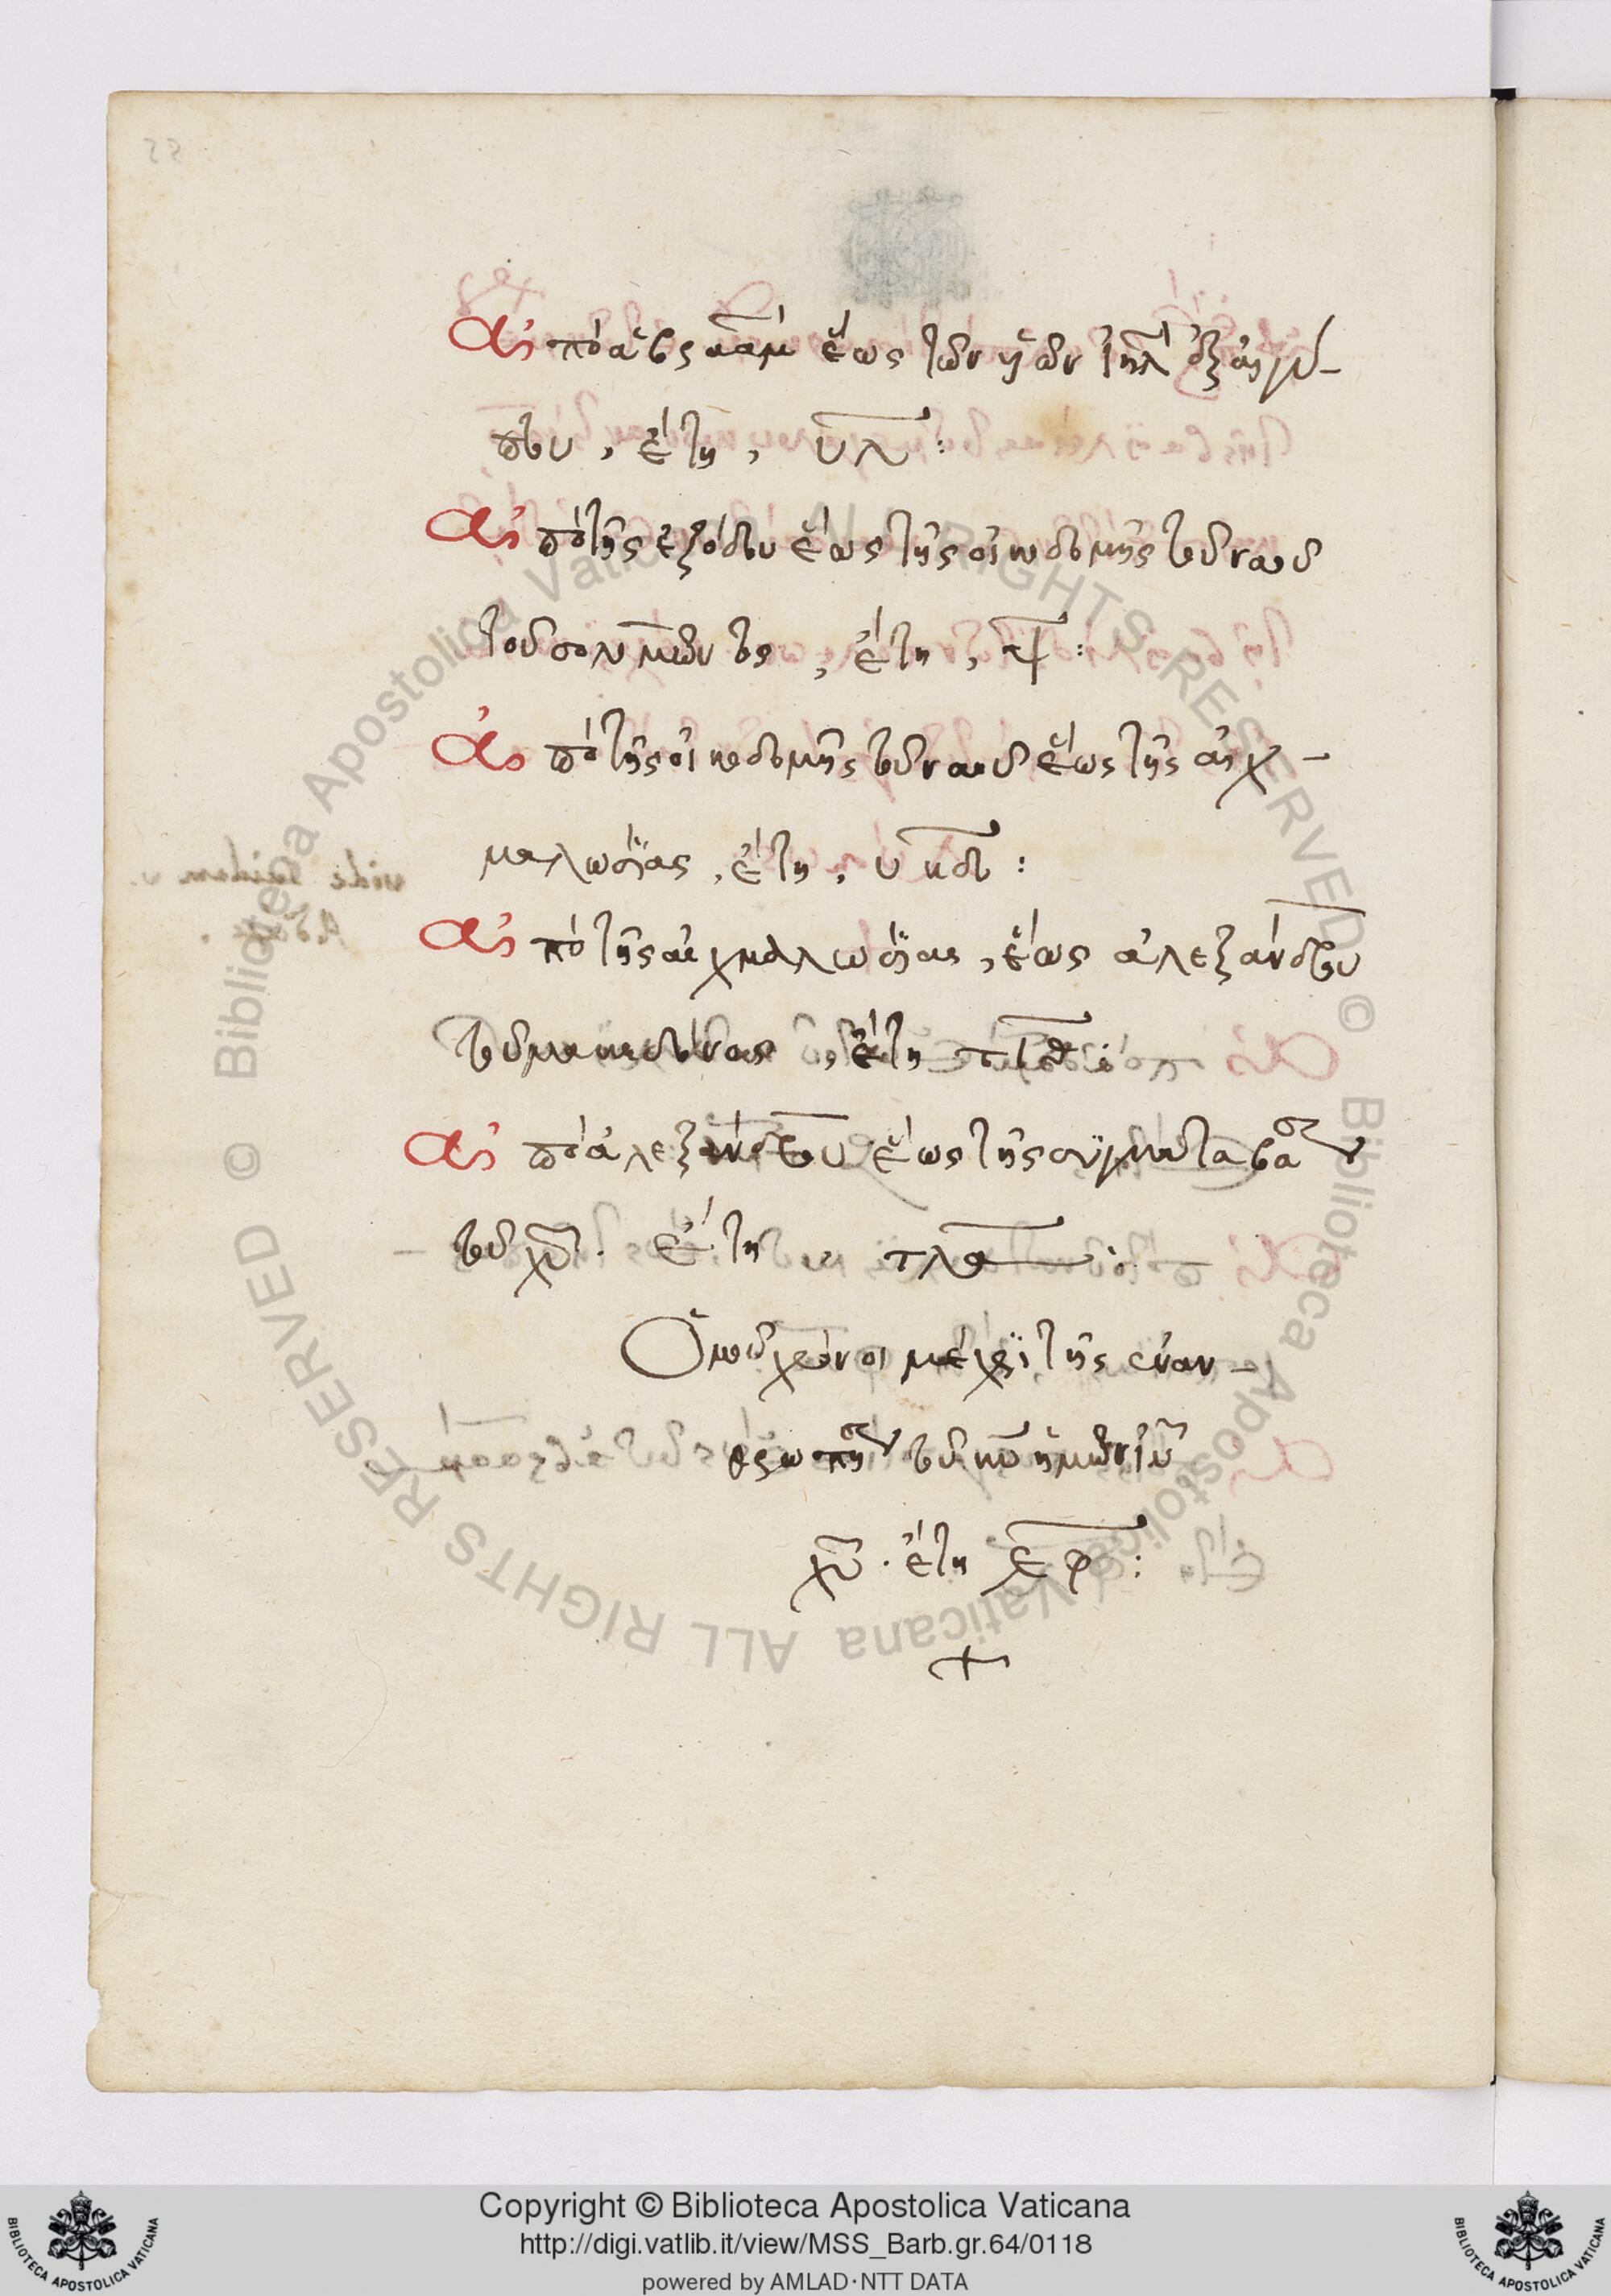 Ἀπὸ ἀβραὰμ ἕως τῶν υἱῶν ἰηλ ἐξ αἰγύ-
πτου, ἔτη, υλ:
Ἀπὸ τῆς ἐξόδου ἕως τῆς οἰκοδομῆς τοῦ ναοῦ
τοῦ σολομῶντος, ἔτη, ψ:
Ἀπὸ τῆς οἰκοδομῆς τοῦ ναοῦ ἕως τῆς αἰχ-
μαλωσίας, ἔτη, υκδ:
Ἀπὸ τῆς αἰχμαλωσίας, ἕως ἀλεξάνδρου
τοῦ μακεδόνος, ἔτη
Ἀπὸ ἀλεξάνδρου ἕως τῆς συγκαταβάσεως
τοῦ χυ. ἔτη
Ὁμοῦ χρόνοι μέχρι τῆς ἐναν-
θρωπήσεως τοῦ κυ ἡμῶν ιυ
χυ. ἔτη εφ:
+
© Biblioteca Apostolica Vaticana ALL RIGHTS RESERVED
Copyright © Biblioteca Apostolica Vaticana
http://digi.vatlib.it/view/MSS_Barb.gr.64/0118
powered by AMLAD·NTT DATA
BIBLIOTECA APOSTOLICA VATICANA
BIBLIOTECA APOSTOLICA VATICANA